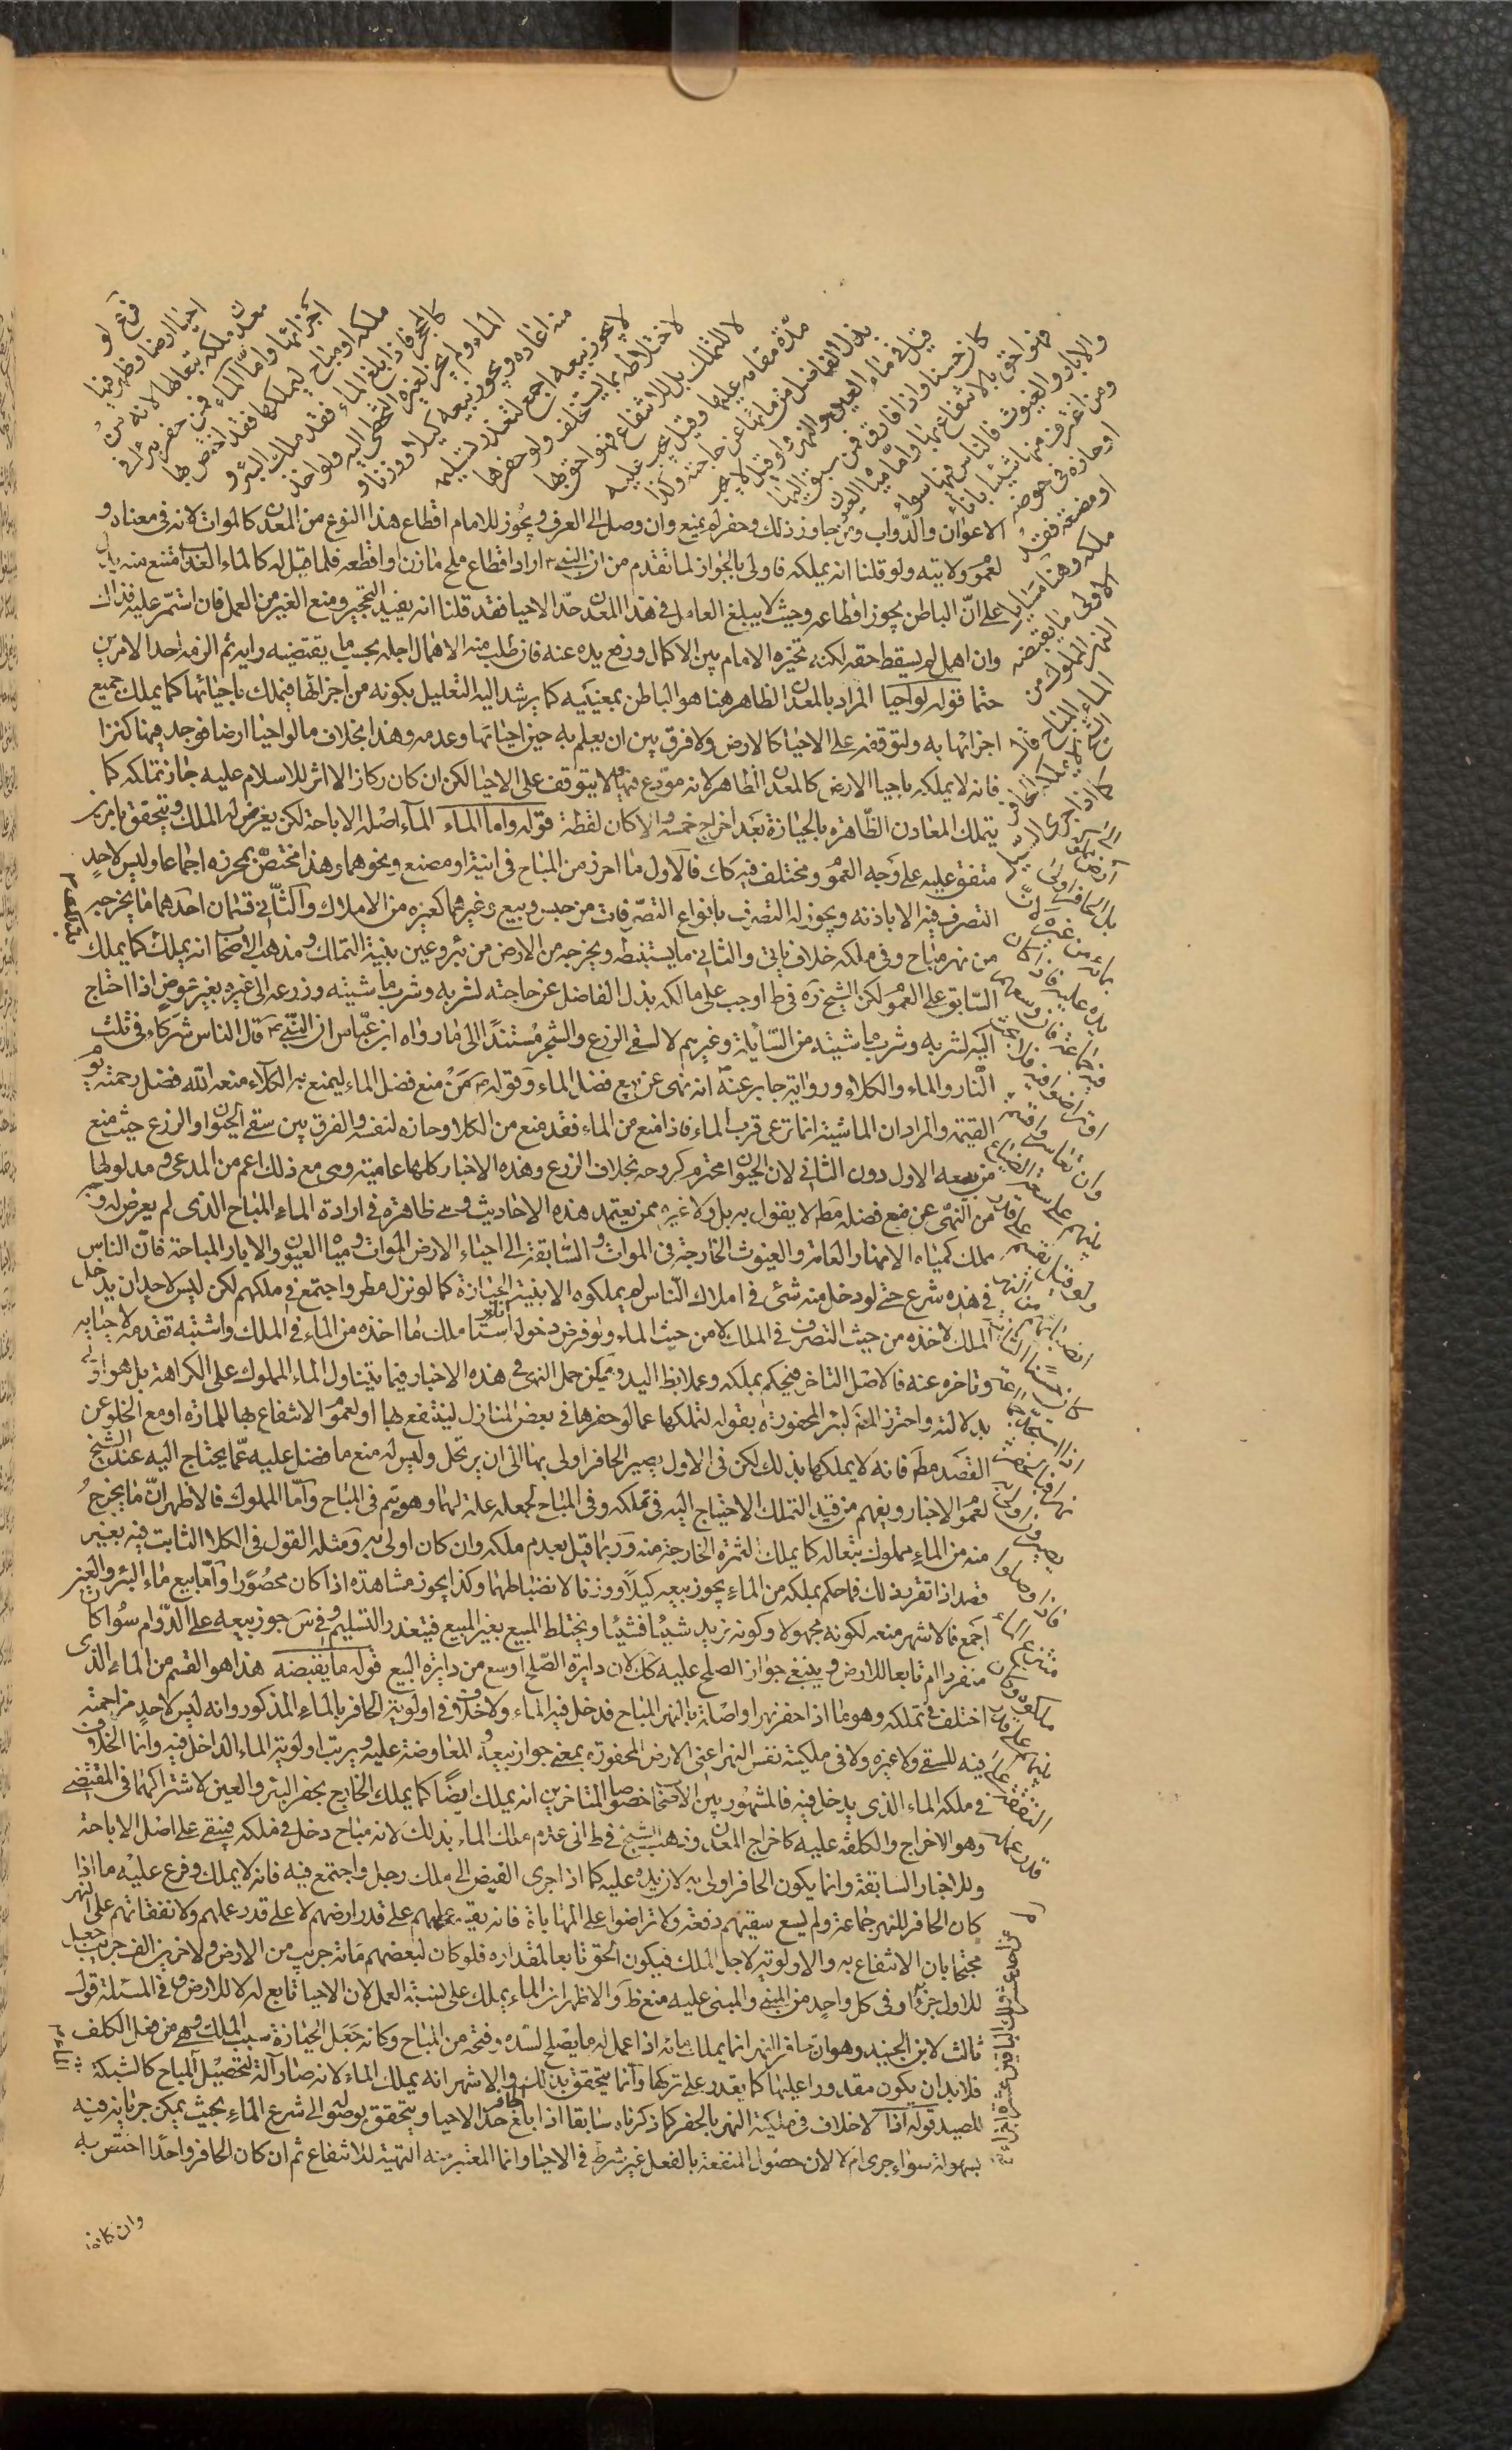 فرع لو
احيا ارضا وظهر فيها
معدن ملكه تبعا لها لانه من
اجزائها واما الماء فمن حفر بئرا في
ملكه او مباح ليملكها فقد اختص بها
كالمحجر فاذا بلغ الماء فقد ملك البئر و
الماء ولم يجز لغيره التخطى اليه ولو اخذ
منه اعاده ويجوز بيعه كيلا ووزنا و
لا يجوز بيعه اجمع لتعذر تسليمه
لاختلاطه بما يستخلف ولو حفرها
لا للتملك بل للانتفاع فهو احق بها
مدّة مقامه عليها وقيل يجب عليه
بذل الفاضل من مائها عن حاجته وكذا
قيل في ماء العين والنهر ولو قيل لا يجب
كان حسنا واذا فارق فمن سبق اليها
فهو احق بالانتفاع بها وامّا مياه العيون
والابار والغيوث فالناس فيها سواء
ومن اغترف منها شيئا باناء
او حازه في حوضه
او مصنعه فقد
ملكه وهنا مسايل
الاولى ما يقبضه
النهر المملوك من
الماء المباح قال
الشيخ لا يملكه الحافر
كما اذا جرى السيل
الى ارض مملوكة
بل الحافر اولى
بمائه من غيره لانّ
يده عليه فاذا كان
فيه جماعة فان وسعهم
او تراضوا فيه فلا بحث
وان تعاسروا قسم
بينهم على سعة الضياع
ولو قيل يقسم على قدر
انصبائهم من النهر
كان حسنا الثانية
اذا استجدّ جماعة
نهرا فبالحفر
يصيرون اولى به
فاذا وصلوا
منتزع الماء
ملكوه وكان
بينهم على قدر
النفقة على
عمله
الاعوان والدّواب ومن جاوز ذلك وحفر لم يمنع وان وصل الى العرف ويجوز للامام اقطاع هذا النوع من المعدن كالموات لانه في معناه و
لعموم ولايته ولو قلنا انه يملكه فاولى بالجواز لما تقدم من ان النبي ص اراد اقطاع ملح مازن او اقطعه فلما قيل له كالماء العد امتنع منه يدل
على انّ الباطن يجوز اقطاعه وحيث لا يبلغ العامل في هذا المعدن حدّ الاحيا فقد قلنا انه يفيد التحجير ومنع الغير من العمل فان استمر عليه فذاك
وان اهمل لم يسقط حقه لكنه يخيره الامام بين الاكمال ورفع يده عنه فان طلب منه الامهال اجله بحسب ما يقتضيه رايه ثم الزمه احد الامرين
حتما قوله لو احيا المراد بالمعدن الظاهر هنا هو الباطن بمعنييه كما يرشد اليه التعليل بكونه من اجزائها فيملك باحيائها كما يملك جميع
اجزائها به ولتوقفه على الاحيا كالارض ولا فرق بين ان يعلم به حين احيائها وعدمه وهذا بخلاف ما لو احيا ارضا فوجد فيها كنزا
فانه لا يملكه باحيا الارض كالمعدن الظاهر لانه مودع فيها ولا يتوقف على الاحيا لكن ان كان ركاز الا اثر للاسلام عليه جاز تملكه كما
يتملك المعادن الظّاهرة بالحيازة بعد اخراج خمسه والا كان لقطة قوله واما الماء المآء اصله الاباحة لكن يعرض له الملك ويتحقق بامرين
متفق عليه على وجه العموم ومختلف فيه كك فالاول ما احرز من المباح في انية او مصنع ونحوهما وهذا مختصّ بمحرزه اجماعا وليس لاحدٍ
التصرف فيه الا باذنه ويجوز له التصرف بانواع التصرفات من حبس وبيع وغيرهما كغيره من الاملاك والثاني قسمان احدهما ما يخرجه بتكلف
من نهر مباح وفي ملكه خلاف ياتي والثاني ما يستنبطه ويخرجه من الارض من بئر وعين بنية التملك ومذهب الاصحاب انه يملك كما يملك
السّابق على العموم لكن الشيخ ره في ط اوجب على مالكه بذل الفاضل عن حاجته لشربه وشرب ماشيته وزرعه الى غيره بغير عوض اذا احتاج
اليه لشربه وشرب ماشيته من السّابلة وغيرهم لا لسقي الزرع والشجر مستندًا الى ما رواه ابن عبّاس ان النبي ص قال الناس شركاء في ثلث
النّار والماء والكلاء ورواية جابر عنه انه نهى عن بيع فضل الماء وقوله ص من منع فضل الماء ليمنع به الكلاء منعه الله فضل رحمته يوم
القيمة والمراد ان الماشية انما ترعى قرب الماء فاذا منع من الماء فقد منع من الكلا وحازه لنفسه والفرق بين سقي الحيوان والزرع حيث منع
من بيعه الاول دون الثاني لان الحيوان محترم كروحه بخلاف الزرع وهذه الاخبار كلها عامية وهي مع ذلك اعم من المدعى ومدلولها
من النهى عن منع فضله مط لا يقول به بل ولا غيره ممن يعتمد هذه الاحاديث وهي ظاهرة في ارادة الماء المباح الذي لم يعرض له وجه
مملك كمياه الانهار العامة والعيون الخارجة في الموات والسّابقة الى احياء الارض الموات ومياه العيون والابار المباحة فانّ الناس
في هذه شرع حتى لو دخل منه شئ في املاك النّاس لم يملكوه الا بنية الحيازة كما لو نزل مطر واجتمع في ملكهم لكن ليس لاحد ان يدخل
الملك لاخذه من حيث التصرف في الملك لا من حيث الماء ولو فرض دخوله ملك ما اخذه من الماء في الملك واشتبه تقدمه لاحيائه
وتاخره عنه فالاصل التاخر فيحكم بملكه وعملا بظ اليد ويمكن حمل النهى في هذه الاخبار فيما يتناول الماء المملوك على الكراهة بل هو اولى
بدلالته واحترز المص لبئر المحفورة بقوله لتملكها عما لو حفرها في بعض المنازل لينتفع بها او لعموم الانتفاع بها للمارة او مع الخلو عن
القصد مط فانه لا يملكها بذلك لكن في الاول يصير الحافر اولى بها الى ان يرتحل وليس له منع ما فضل عليه عمّا يحتاج اليه عند الشيخ
لعموم الاخبار ويفهم من قيد التملك الاحتياج اليه في تملكه وفي المباح لجعله علة لهما وهو يتم في المباح وامّا المملوك فالاظهر انّ ما يخرج
منه من الماء مملوك تبعا له كما يملك الثمرة الخارجة منه وربّما قيل بعدم ملكه وان كان اولى به ومثله القول في الكلا النابت فيه بغير
قصد اذا تقرر ذلك فما حكم بملكه من الماء يجوز بيعه كيلًا ووزنا لانضباطهما وكذا يجوز مشاهدة اذا كان محصورًا وامّا بيع ماء البئر والعين
اجمع فالاشهر منعه لكونه مجهولا وكونه يزيد شيئا فشيئا ويختلط المبيع بغير المبيع فيتعذر التسليم وفي س جوز بيعه على الدّوام سواء كان
منفردا ام تابعا للارض وينبغي جواز الصلح عليه كك لان دايرة الصلح اوسع من دايرة البيع قوله ما يقبضه هذا هو القسم من الماء الذي
اختلف في تملكه وهو ما اذا حفر نهرا واصله بالنهر المباح فدخل فيه الماء ولا خلاف في اولوية الحافر بالماء المذكور وانه ليس لاحدٍ مزاحمته
فيه للسقي ولا غيره ولا في ملكيته نفس النهر اعني الارض المحفورة بمعنى جواز بيعه والمعاوضة عليه ويريب اولوية الماء الداخل فيه وانما الخلاف
في ملكه الماء الذي يدخل فيه فالمشهور بين الاصحاب خصوصا المتاخرين انه يملك ايضًا كما يملك الخارج بحفر البئر والعين لاشتراكهما في المقتضي
وهو الاخراج والكلفة عليه كاخراج المعدن وذهب الشيخ في ط الى عدم ملك الماء بذلك لانه مباح دخل في ملكه فيبقى على اصل الاباحة
وللاخبار السابقة وانما يكون الحافر اولى به لان يده عليه كما اذا جرى الفيض الى ملك رجل واجتمع فيه فانه لا يملك وفرع عليه ما اذا
كان الحافر للنهر جماعة ولم يسع سقيهم دفعة ولا تراضوا على المهاياة فانه يقسم عليهم على قدر ارضهم لا على قدر عملهم ولا نفقاتهم على النهر
محتجا بان الانتفاع به والاولوية لاجل الملك فيكون الحق تابعا لمقداره فلو كان لبعضهم مائة جريب من الارض ولاخر الف جريب جعل
للاول جزءًا وفي كل واحدٍ من المبنى والمبنى عليه منع ظ والاظهر ان الماء يملك على نسبة العمل لان الاحيا تابع له لا للارض وفي المسئلة قول
ثالث لابن الجنيد وهو ان حافر النهر انما يملك مائه اذا عمل له ما يصلح لسدّه وفتحه من المباح وكانه جعل الحيازة سبب الملك وهي من فعل المكلف
فلا بد ان يكون مقدورا عليها كما يقدر على تركها وانما يتحقق بذلك والاشهر انه يملك الماء لانه صار آلة لتحصيل المباح كالشبكة
للصيد قوله اذا لا خلاف في ملكية النهر بالحفر كما ذكرناه سابقا اذا بلغ الحافر حدّ الاحيا ويتحقق بوصوله الى شرع الماء بحيث يمكن جريانه فيه
بسهولة سواء جرى ام لا لان حصول المنفعة بالفعل غير شرط في الاحيا وانما المعتبر منه التهيئة للانتفاع ثم ان كان الحافر واحدًا اختص به
وان كانوا